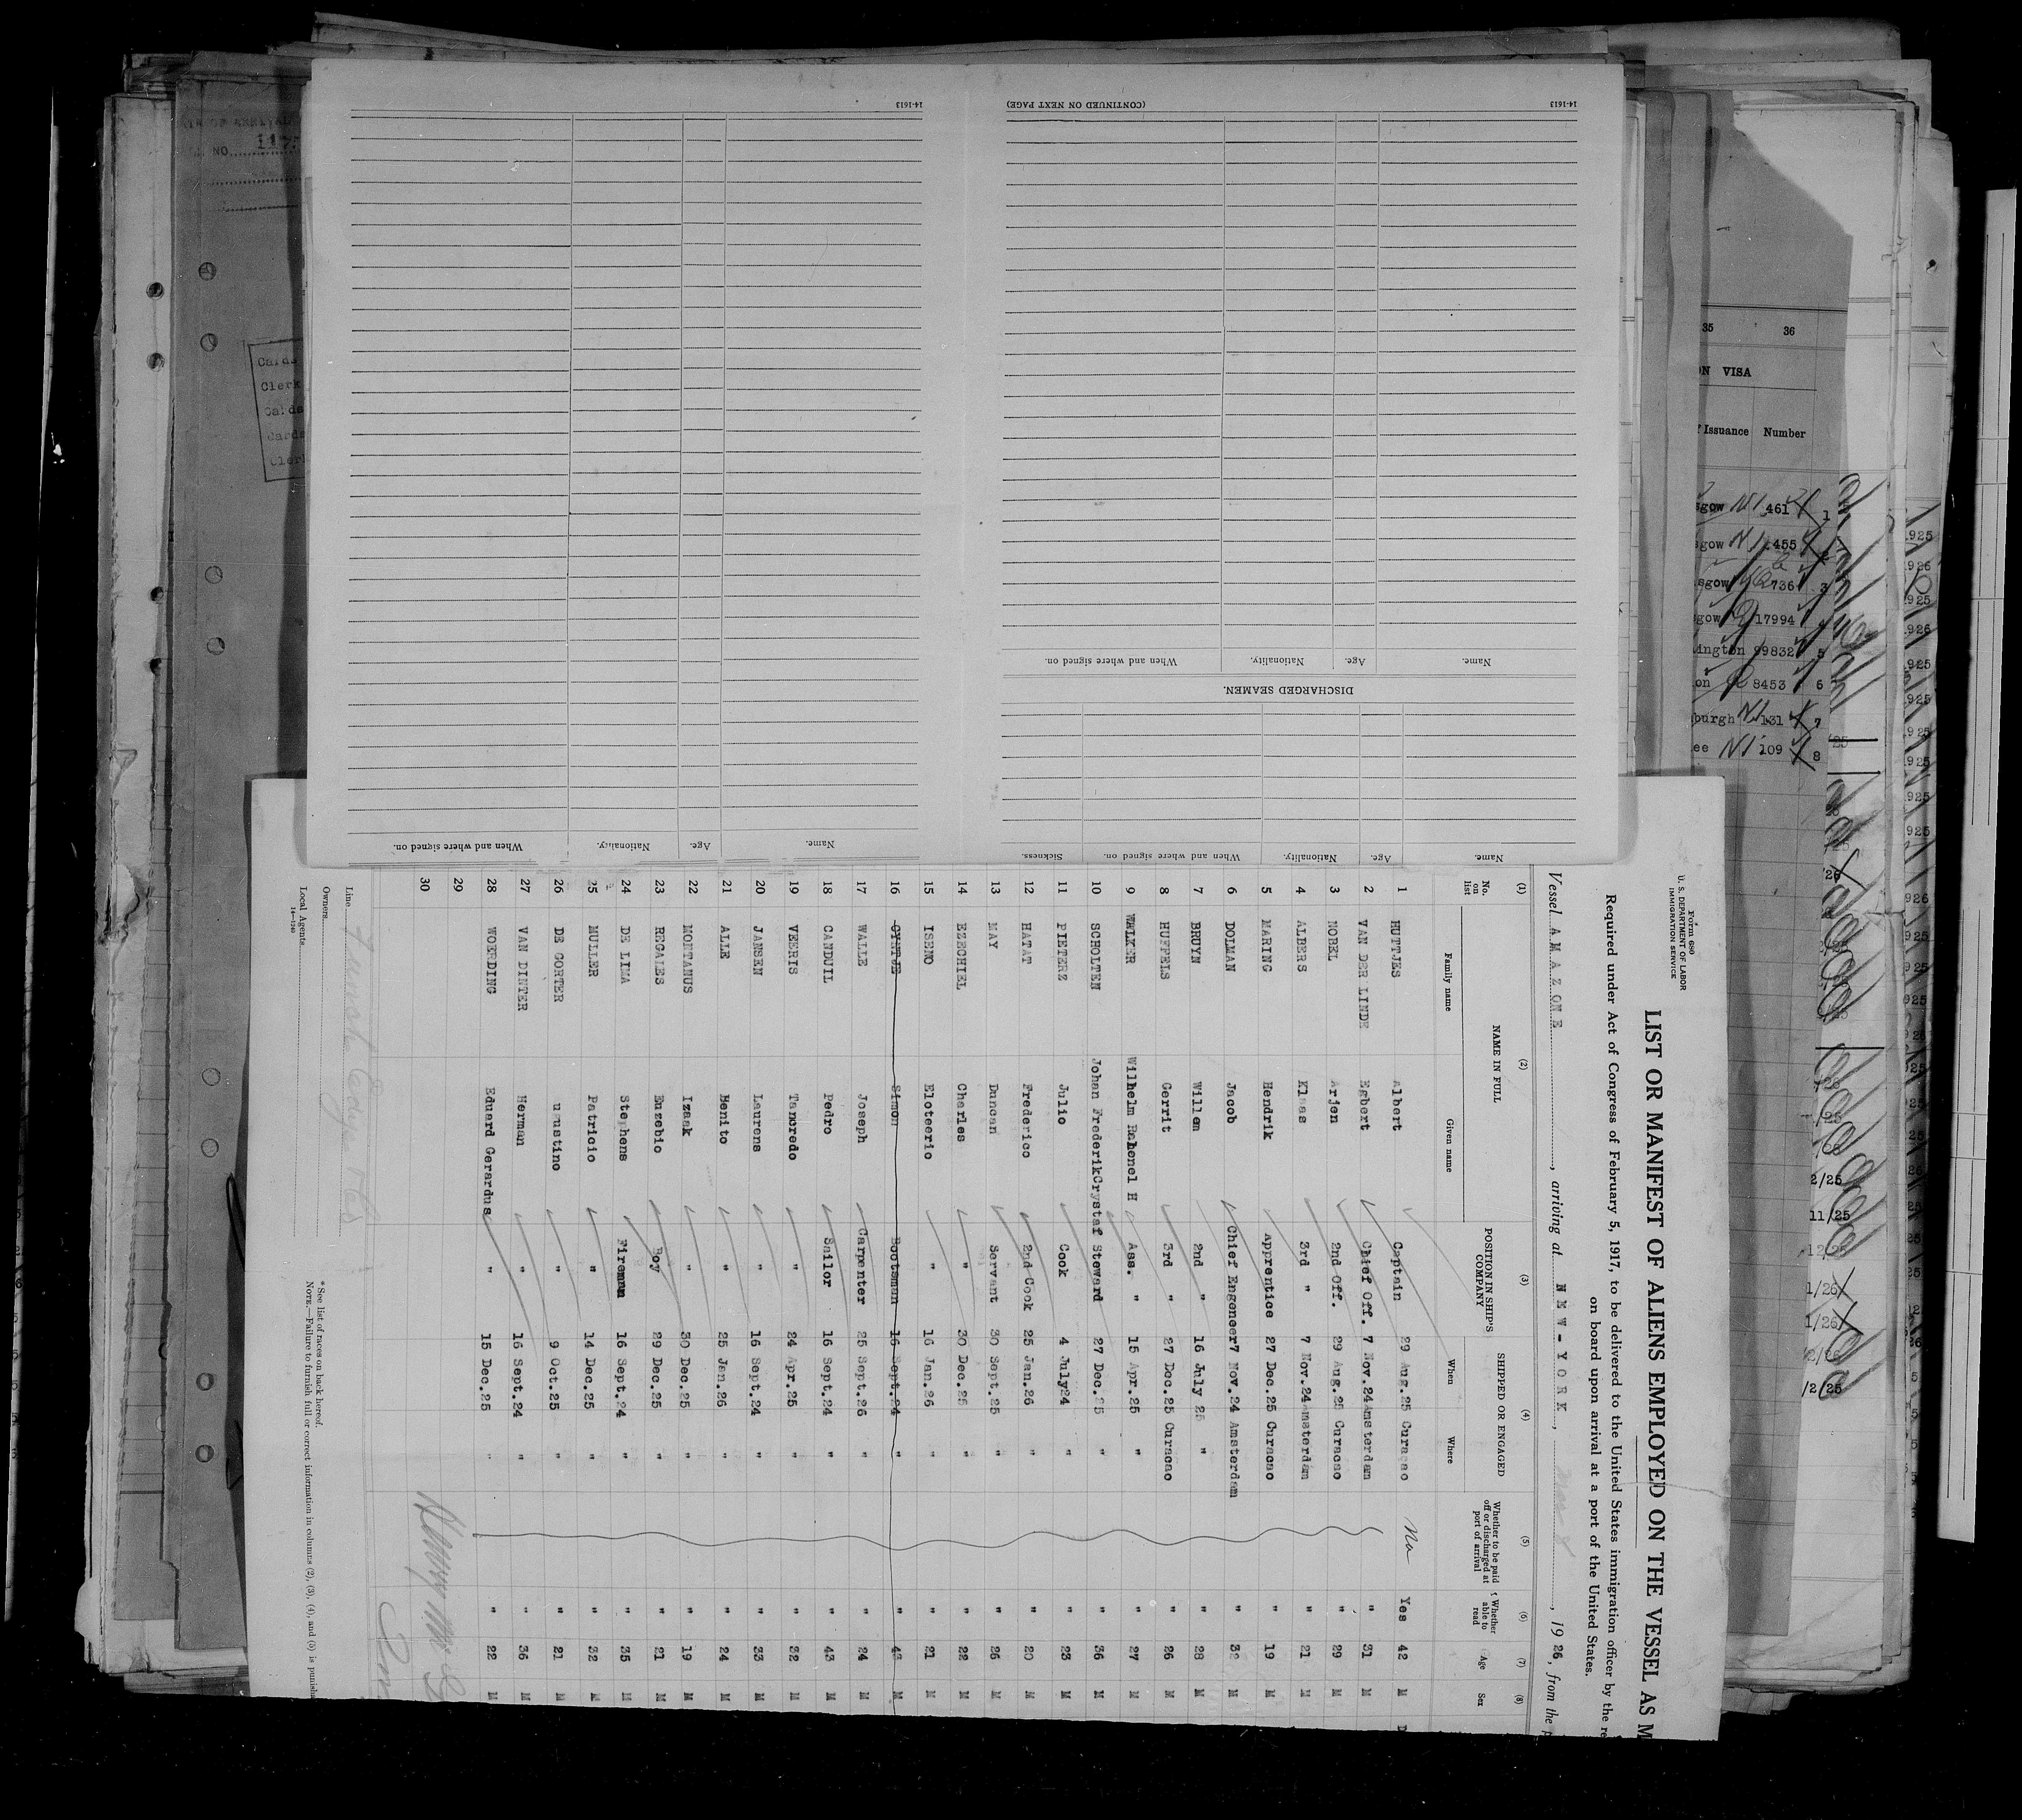 Form 680
U. S. DEPARTMENT OF LABOR
IMMIGRATION SERVICE
LIST OR MANIFEST OF ALIENS EMPLOYED ON THE VESSEL AS M
Required under Act of Congress of February 5, 1917, to be delivered to the United States immigration officer by the re
on board upon arrival at a port of the United States.
Vessel AMAZONE, arriving at NEW-YORK, 1926, from the p
(1) (2) (3) (4) (5) (6) (7) (8)
No. on list NAME IN FULL POSITION IN SHIP'S COMPANY SHIPPED OR ENGAGED Whether to be paid off or discharged at port of arrival Whether able to read Age Sex
Family name Given name When Where
1 HUTTJES Albert Captain 29 Aug.25 Curacao No Yes 42 M
2 VAN DER LINDE Egbert Chief Off. 7 Nov.24 Amsterdam " 31 M
3 NOBEL Arjen 2nd Off. 29 Aug.25 Curacao " 29 M
4 ALBERS Klaas 3rd " 7 Nov.24 Amsterdam " 21 M
5 MARING Hendrik Apprentice 27 Dec.25 Curacao " 19 M
6 DOLMAN Jacob Chief Engeneer 7 Nov.24 Amsterdam " 32 M
7 BRUYN Willem 2nd " 16 July 25 " " 28 M
8 HUFFELS Gerrit 3rd " 27 Dec.25 Curacao " 26 M
9 WALKER Wilhelm H Ass. " 15 Apr.25 " " 27 M
10 SCHOLTEN Johan Frederik Crystaf Steward 27 Dec.25 " " 36 M
11 PIETERZ Julio Cook 4 July24 " " 23 M
12 HATAT Frederico 2nd Cook 25 Jan.26 " " 20 M
13 MAY Duncan Servant 30 Sept.25 " " 26 M
14 EZECHIEL Charles " 30 Dec.25 " " 22 M
15 ISENO Eloteerio " 16 Jan.26 " " 21 M
16 CYNTJE Simon Bootsman 16 Sept.24 " " 43 M
17 WALLE Joseph Carpenter 25 Sept.26 " " 24 M
18 CANDUIL Pedro Sailor 16 Sept.24 " " 43 M
19 VEERIS Tancredo " 24 Apr.25 " " 22 M
20 JANSEN Laurens " 16 Sept.24 " " 33 M
21 ALLE Benito " 25 Jan.26 " " 24 M
22 MONTANUS Izaak " 30 Dec.25 " " 19 M
23 REGALES Euzebio Boy 29 Dec.25 " " 21 M
24 DE LIMA Stephens Firemen 16 Sept.24 " " 35 M
25 MULLER Patricio " 14 Dec.25 " " 32 M
26 DE GORTER ustino " 9 Oct.25 " " 21 M
27 VAN DINTER Herman " 16 Sept.24 " " 36 M
28 WOERDING Eduard Gerardus " 15 Dec.25 " " 22 M
29
30
Line
Owners
Local Agents
14—1240
*See list of races on back hereof.
NOTE.—Failure to furnish full or correct information in columns (2), (3), (4), and (5) is punisha
14-1613
(CONTINUED ON NEXT PAGE)
14-1613
Name. Age. Nationality. When and where signed on.
DISCHARGED SEAMEN.
Name. Age. Nationality. When and where signed on. Sickness.
Name. Age. Nationality. When and where signed on.
35 36
ON VISA
Issuance Number
sgow 461 1
sgow 455 2
sgow 736 3
sgow 17994
ington 99832 5
on 8453 6
burgh 131 7
ee 109 8
NO.
Cards
Clerk
Cards
Cards
Clerk